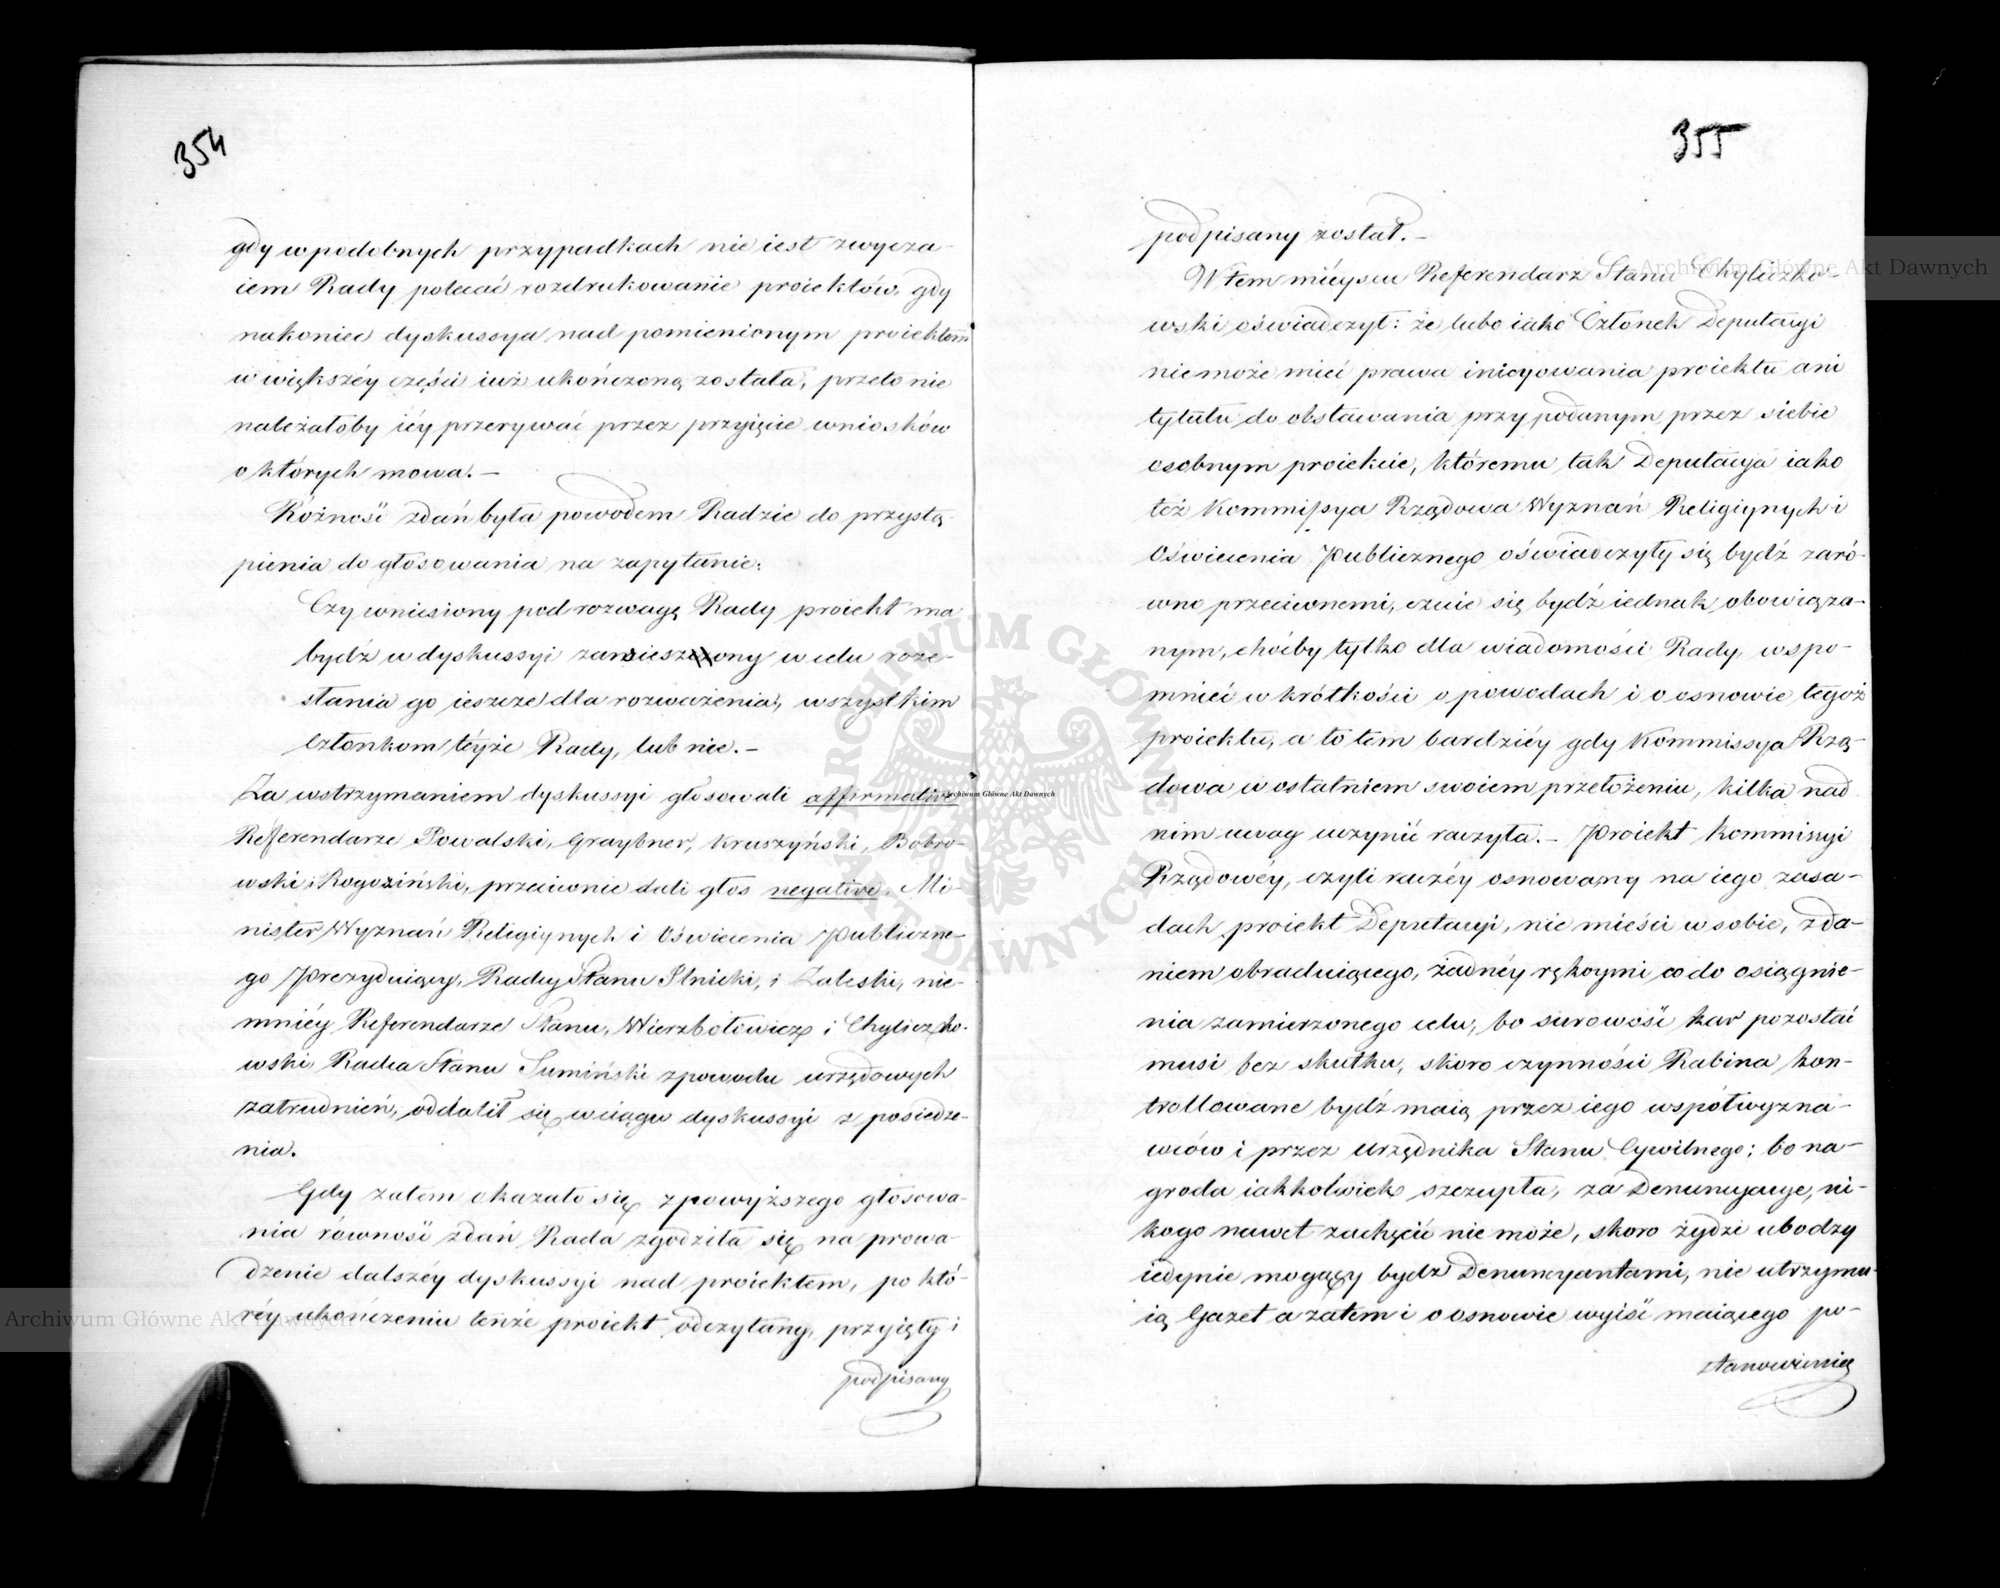 354
gdy w podobnych przypadkach nie iest zwycza-
iem Rady polecać rozdrukowanie proiektów, gdy
nakoniec dyskussya nad pomienionym proiektem
w większéy części iuż ukończoną została, przeto nie
należałoby iéy przerywać przez przyięcie wniosków
o których mowa. —
Różność zdań była powodem Radzie do przystą-
pienia do głosowania na zapytanie:
Czy wniesiony pod rozwagę Rady proiekt ma
bydź w dyskussyi zawieszony w celu roze-
słania go ieszcze dla rozważenia, wszystkim
Członkom téyże Rady, lub nie. —
Za wstrzymaniem dyskussyi głosowali affirmative
Referendarze Powalski, Graybner, Kruszyński, Bobro-
wski i Rogoziński, przeciwnie dali głos negative, Mi-
nister Wyznań Religiynych i Oświecenia Publiczne-
go Prezyduiący, Radcy Stanu Ilnicki, i Zaleski, nie-
mniéy Referendarze Stanu, Wierzbołowicz i Chyliczko-
wski, Radca Stanu Sumiński z powodu urzędowych
zatrudnień, oddalił się w ciągu dyskussyi z posiedze-
nia.
Gdy zatem okazało się z powyższego głosowa-
nia równość zdań Rada zgodziła się na prowa-
dzenie dalszéy dyskussyi nad proiektem, po któ-
réy ukończeniu tenże proiekt odczytany, przyięty i
podpisany
355
podpisany został. —
W tem mieyscu Referendarz Stanu Chyliczko-
wski oświadczył: że lubo iako Członek Deputacyi
nie może mieć prawa inicyowania proiektu ani
tytułu do obstawania przy podanym przez siebie
osobnym proiekcie, któremu tak Deputacya iako
też Kommissya Rządowa Wyznań Religiynych i
Oświecenia Publicznego oświadczyły się bydź zaró-
wno przeciwnemi, czuie się bydź iednak obowiąza-
nym, choćby tylko dla wiadomości Rady, wspo-
mnieć w krótkości o powodach i o osnowie tegoż
proiektu, a to tem bardziéy gdy Kommissya Rzą-
dowa w ostatniem swoiem przełożeniu, kilka nad
nim uwag uczynić raczyła. — Proiekt Kommissyi
Rządowéy, czyli raczéy osnowany na iego zasa-
dach proiekt Deputacyi, nie mieści w sobie, zda-
niem obraduiącego, żadnéy rękoymi co do osiągnie-
nia zamierzonego celu, bo surowość kar pozostać
musi bez skutku, skoro czynności Rabina kon-
trollowane bydź maią przez iego współwyzna-
wców i przez Urzędnika Stanu Cywilnego; bo na-
groda iakkolwiek szczupła, za Denuncyacye, ni-
kogo nawet zachęcić nie może, skoro żydzi ubodzy
iedynie mogący bydź Denuncyantami, nie utrzymu-
ią Gazet a zatem i o osnowie wyiść maiącego po-
stanowienia
Archiwum Główne Akt Dawnych
Archiwum Główne Akt Dawnych
Archiwum Główne Akt Dawnych
ARCHIWUM GŁÓWNE AKT DAWNYCH